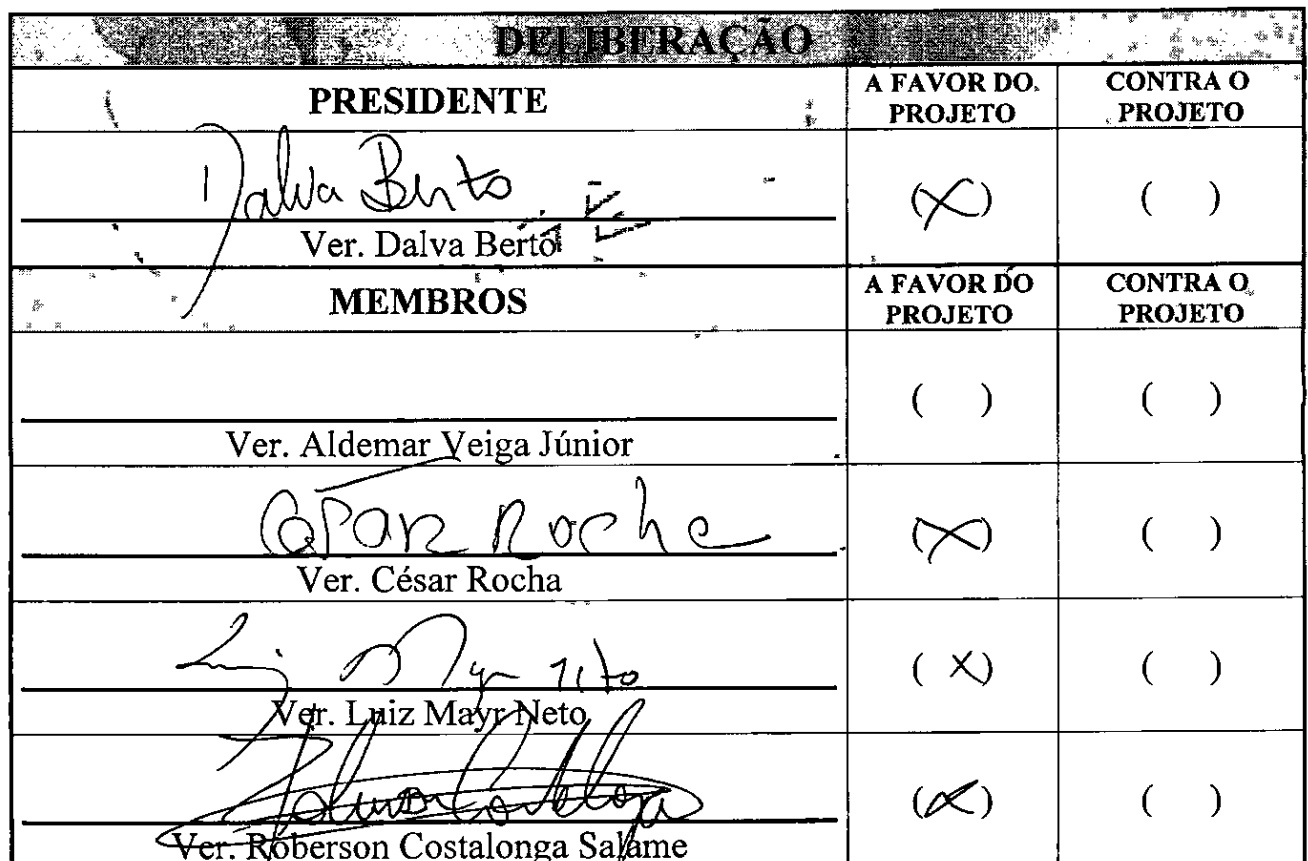 DELIBERAÇÃO
PRESIDENTE
A FAVOR DO PROJETO
CONTRA O PROJETO
Dalva Berto
(X)
( )
Ver. Dalva Berto
MEMBROS
A FAVOR DO PROJETO
CONTRA O PROJETO
( )
( )
Ver. Aldemar Veiga Júnior
César Rocha
(X)
( )
Ver. César Rocha
Luiz Mayr Neto
(X)
( )
Ver. Luiz Mayr Neto
(X)
( )
Ver. Roberson Costalonga Salame